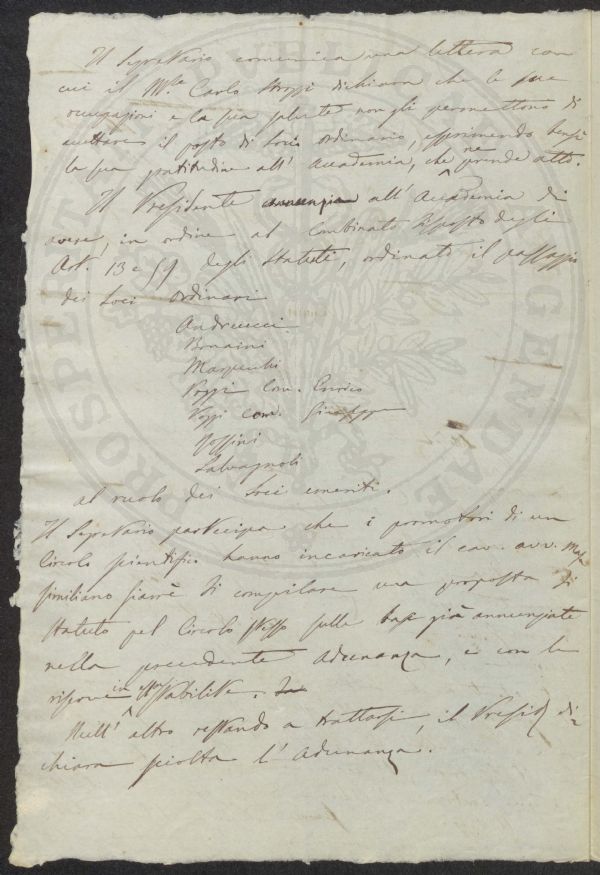 Il Segretario comunica una lettera con
cui il M.se Carlo Strozzi dichiara che le sue
occupazioni e la sua salute non gli permettono di
accettare il posto di Socio ordinario, esprimendo bensì
la sua gratitudine all' Accademia, che ne prende atto.
Il Presidente annunzia all' Accademia di
avere, in ordine al combinato disposto degli
Art. 13 e 59 degli Statuti, ordinato il passaggio
dei Soci ordinari
Andreucci
Bonaini
Marzucchi
Poggi Com. Enrico
Poggi Com. Giuseppe
Rossini
Salvagnoli
al ruolo dei Soci emeriti.
Il Segretario partecipa che i promotori di un
Circolo scientifico hanno incaricato il cav. avv. Mas
similiano Giarrè di compilare una proposta di
Statuto pel Circolo stesso sulle basi già annunziate
nella precedente Adunanza, e con le
riserve in essa stabilite.
Null' altro restando a trattarsi, il Presid. di=
chiara sciolta l' Adunanza.
PROSPERITATI
AUGENDAE